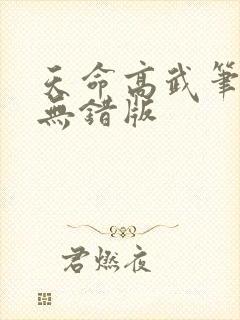 天命高武筆
無錯版
君燃夜